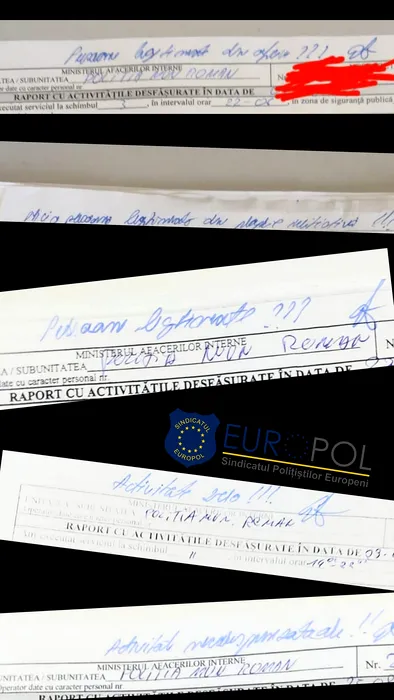 Persoane legitimate din oficiu ???
MINISTERUL AFACERILOR INTERNE
TEA / SUBUNITATEA POLIȚIA MUN ROMAN
Nr
or date cu caracter personal nr.
RAPORT CU ACTIVITĂȚILE DESFĂȘURATE ÎN DATA DE
xecutat serviciul la schimbul 3, în intervalul orar 22-06, în zona de siguranță publică
legitimate din !!!
Persoane legitimate ???
MINISTERUL AFACERILOR INTERNE
A / SUBUNITATEA POLIȚIA MUN ROMAN
N
date cu caracter personal nr.
RAPORT CU ACTIVITĂȚILE DESFĂȘURATE ÎN DATA DE
SINDICATUL
EUROPOL
EUROPOL
Sindicatul Polițiștilor Europeni
Activitate zero !!!
POLIȚIA MUN. ROMAN
Operator date cu caracter personal
RAPORT CU ACTIVITĂȚILE DESFĂȘURATE ÎN DATA DE
Am executat serviciul la schimbul II, în intervalul orar 14⁰⁰-22⁰⁰
Activitate necorespunzătoare !!
MINISTERUL AFACERILOR INTERNE
UNITATEA / SUBUNITATEA POLIȚIA MUN ROMAN
Nr.
Operator date cu caracter personal nr.
RAPORT CU ACTIVITĂȚILE DESFĂȘURATE ÎN DATA DE